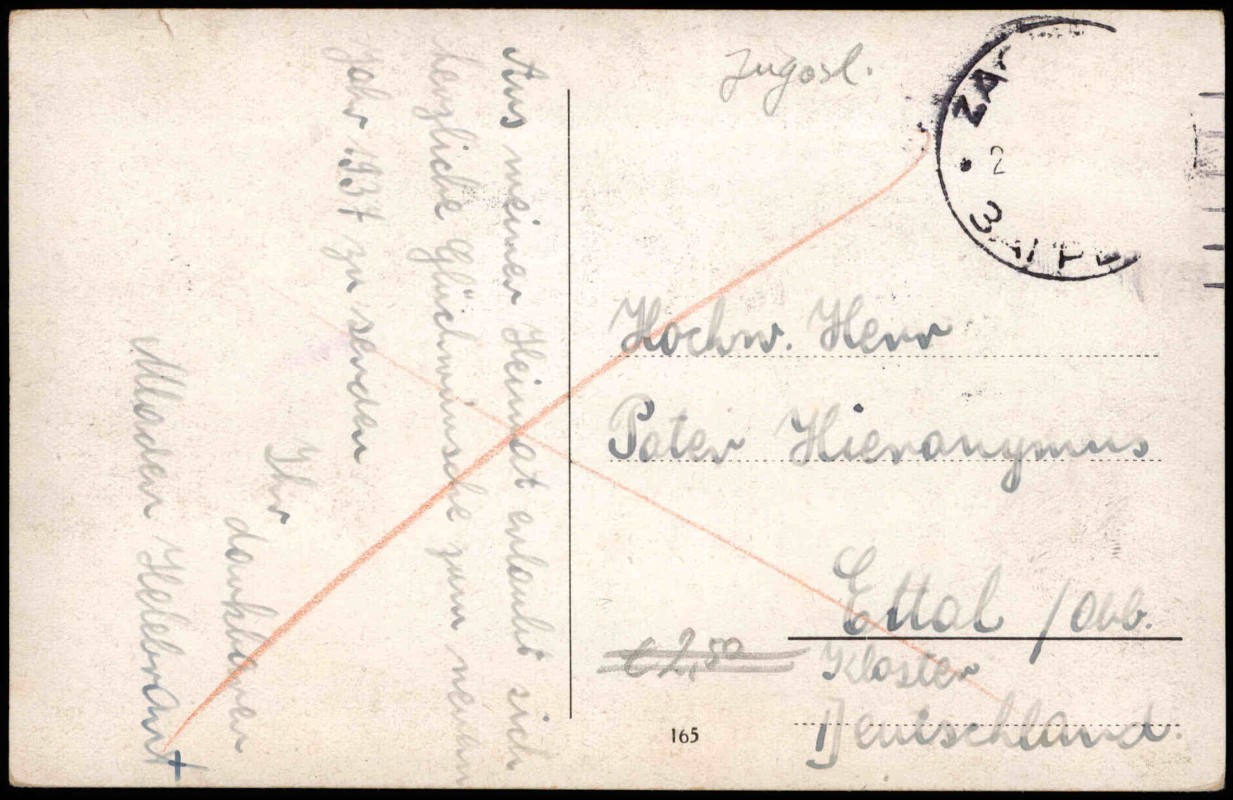 Aus meiner Heimat erlaubt sich
herzliche Glückwünsche zum neuen
Jahr 1937 zu senden
Ihr
dankbarer
Mladen Helebrant
Jugosl.
ZA
2
ЗАГРЕ
Hochw. Herr
Pater Hieronymus
Ettal / Obb.
Kloster
Deutschland.
€ 2,50
165